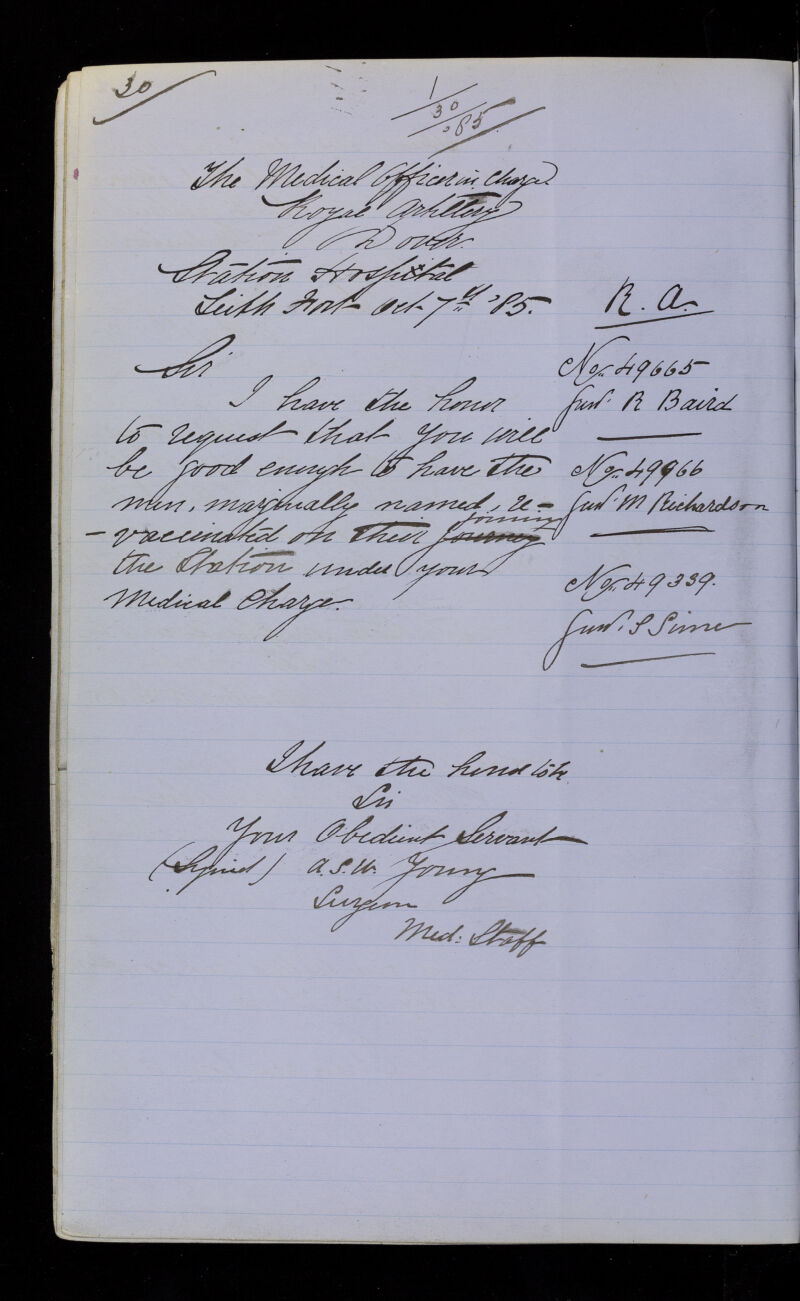 30
1/30/85
The Medical Officer in Charge
Royal Artillery
Dover
Station Hospital
Leith Fort Oct 7th '85.
Sir
I have the honor
to request that you will
be good enough to have the
men, marginally named, re-
-vaccinated on their joining
the Station under your
Medical Charge.
R. A.
No. 49665
Gunr. R Baird
No. 49966
Gunr M Richardson
No. 49339.
Gunr. S Sime
I have the honor to be
Sir
Your Obedient Servant
(Signed) A.S.W. Young
Surgeon
Med: Staff